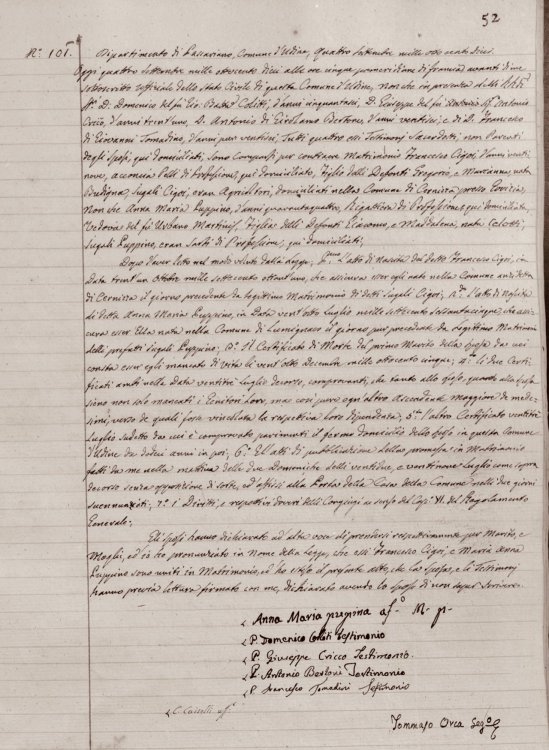 52
N.° 101.
Dipartimento di Passariano, Comune d'Udine, quattro Settembre mille otto cento dieci.
Oggi quattro Settembre mille ottocento dieci alle ore cinque pomeridiane di Francia avanti di me
sottoscritto Uffiziale dello Stato Civile di questa Comune d'Udine, non che in presenza delli
D. Domenico del fù Gio: Batta d'anni cinquantasei, D. Giuseppe del fù Antonio
d'anni trent'uno, D. Antonio di Girolamo Bertoni, d'anni ventisei, e di D. Francesco
di Giovanni Tomadini, d'anni pur ventisei, tutti quattro essi Testimonj Sacerdoti, non Parenti
degli Sposi, qui domiciliati, sono comparsi per contraer Matrimonio Francesco Cigoi, d'anni venti
nove, acconcia Pelli di Professione, qui domiciliato, Figlio delli Defonti Gregorio, e Marianna, nata
Jugali Cigoi, eran Agricoltori, domiciliati nella Comune di Cerniza presso Gorizia,
Non che Anna Maria Puppino, d'anni quarantaquattro, Rigattera di Professione, qui domiciliata,
Vedova del fù Urbano Figlia delli Defonti Giacomo, e Maddalena, nata
Jugali Puppino, eran Sarti di Professione, qui domiciliati;
Dopo d'aver letto nel modo voluto dalla Legge; P.mo L'atto di Nascita del detto Francesco Cigoi, in
data trent'un Ottobre mille settecento ottant'uno, che assicura esser egli nato nella Comune anzidetta
di Cerniza il giorno precedente da legittimo Matrimonio di detti Jugali Cigoi; 2.° L'atto di Nascita
di detta Anna Maria Puppino, in data vent'otto Luglio mille settecento sessantacinque, che assi-
cura esser Ella nata nella Comune di Lumignacco il giorno pur precedente da Legittimo Matrimonio
delli prefatti Jugali Puppino; 3.° Il Certificato di Morte del primo Marito della Sposa da cui
consta esser egli mancato di vita li vent'otto Decembre mille ottocento cinque; 4.° li due Certi-
ficati ambi nella data ventitrè Luglio decorso, comprovanti, che tanto allo Sposo, quanto alla Sposa
sieno non solo mancati i Genitori loro, ma così pure ogni altro Ascendente maggiore de mede-
simi, verso de quali fosse vincolata la respettiva loro dipendenza; 5.° L'altro Certificato ventitrè
Luglio sudetto da cui è comprovato parimenti il fermo domicilio dello Sposo in questa Comune
d'Udine da dodici anni in poi; 6.° Gl'atti di pubblicazione della promessa in Matrimonio
fatti da me nella mattina delle due Domeniche delli ventidue, e ventinove Luglio come sopra
decorso senza opposizione di sorte, ed affissi alla Porta della Casa della Comune nelli due giorni
suennunziati; 7.° i Diritti, e respettivi doveri delli Conjugi a senso del Cap.° VI. del Regolamento
Generale;
Gli Sposi hanno dichiarato ad alta voce di prendersi respettivamente per Marito, e
Moglie, ed io hò pronunziato in Nome della Legge, che essi Francesco Cigoi, e Maria Anna
Puppino sono uniti in Matrimonio, ed hò esteso il presente atto, che la Sposa, e li Testimonj
hanno previa lettura firmato con me, dichiarato avendo lo Sposo di non saper scrivere.
Anna Maria M. p.
P. Domenico Testimonio
P. Giuseppe Cricco Testimonio.
P. Antonio Bertoni Testimonio
P. Francesco Tomadini Testimonio
Tommaso Orca